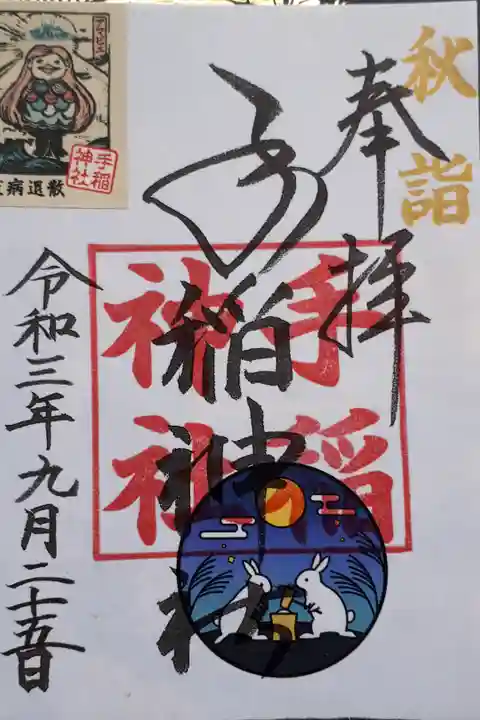 秋詣
奉拝
手稲神社
手稲
神社
令和三年九月二十五日
アマビエ
手稲
神社
病退散